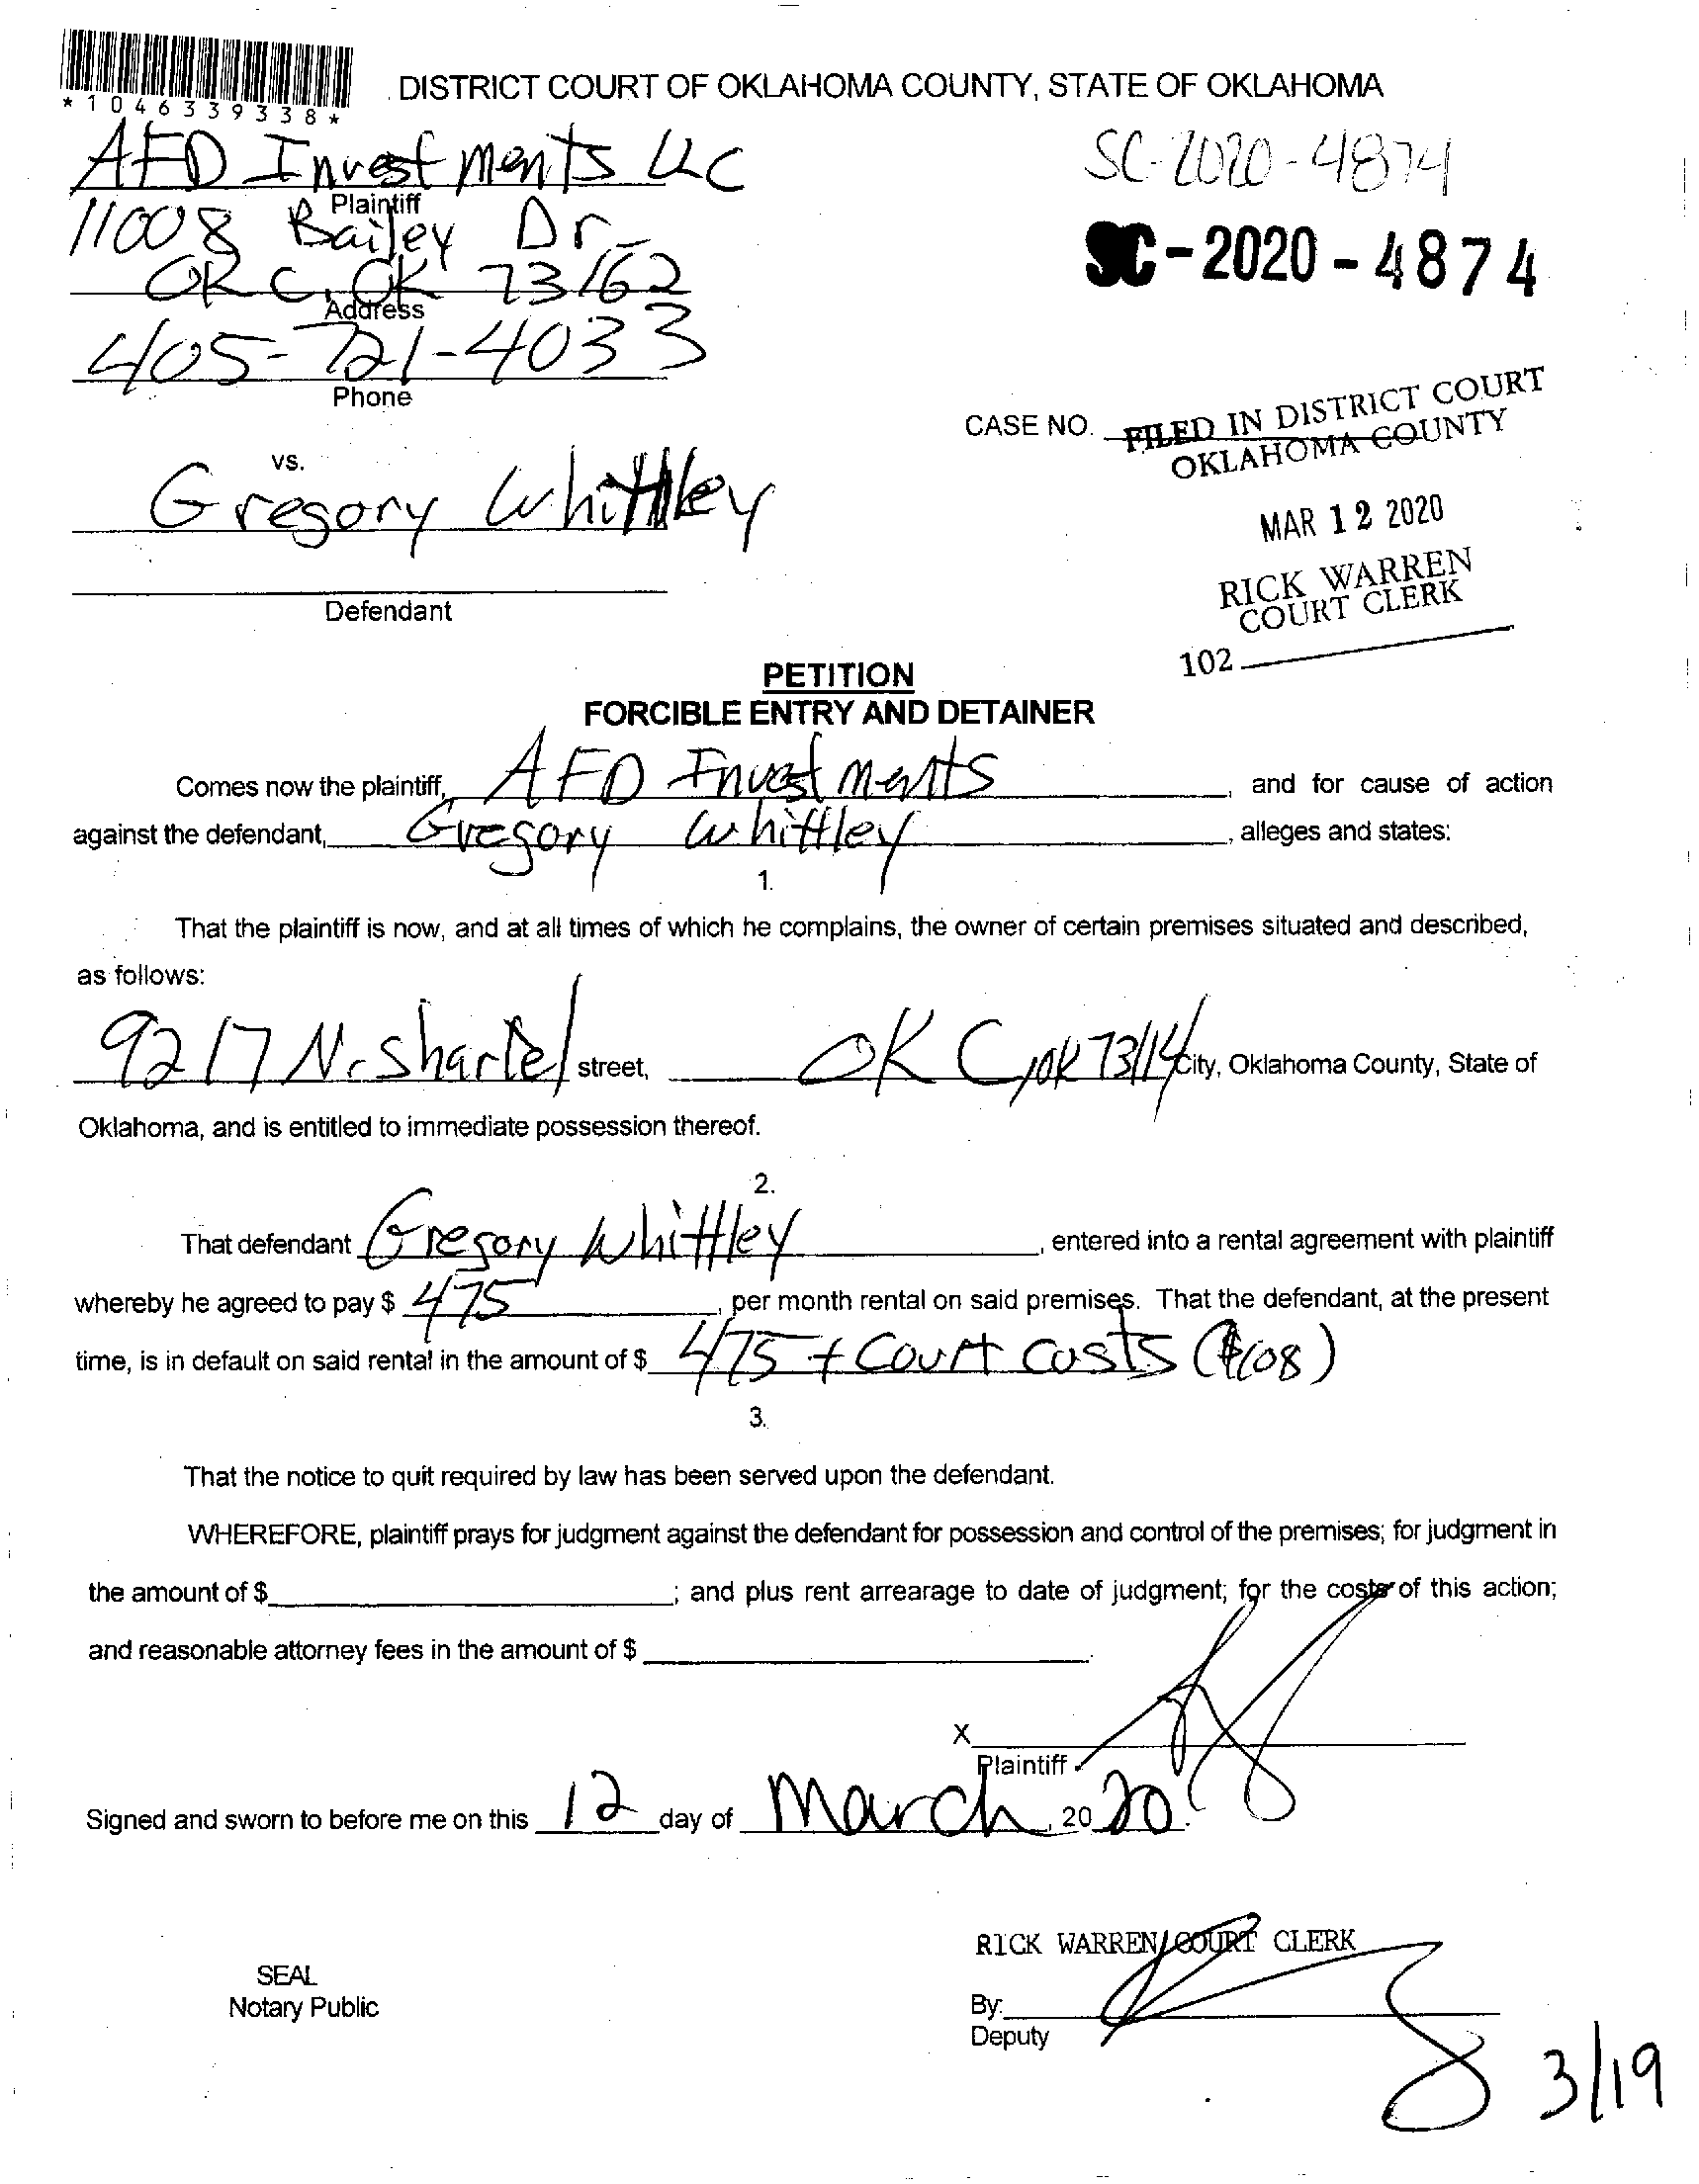 *1046339338*
DISTRICT COURT OF OKLAHOMA COUNTY, STATE OF OKLAHOMA
AFD Investments LLC
Plaintiff
SC-2020-4874
11008 Bailey Dr.
SC-2020-4874
OKC, OK 73162
Address
405-721-4033
Phone
CASE NO.
FILED IN DISTRICT COURT
OKLAHOMA COUNTY
vs.
Gregory Whittley
MAR 12 2020
RICK WARREN
COURT CLERK
Defendant
102
PETITION
FORCIBLE ENTRY AND DETAINER
Comes now the plaintiff, AFD Investments, and for cause of action
against the defendant, Gregory Whittley, alleges and states:
1.
That the plaintiff is now, and at all times of which he complains, the owner of certain premises situated and described,
as follows:
9217 N. Shartel street, OKC, OK 73114 City, Oklahoma County, State of
Oklahoma, and is entitled to immediate possession thereof.
2.
That defendant Gregory Whittley, entered into a rental agreement with plaintiff
whereby he agreed to pay $ 475, per month rental on said premises. That the defendant, at the present
time, is in default on said rental in the amount of $ 475 + Court Costs ($108)
3.
That the notice to quit required by law has been served upon the defendant.
WHEREFORE, plaintiff prays for judgment against the defendant for possession and control of the premises; for judgment in
the amount of $ ; and plus rent arrearage to date of judgment; for the costs of this action;
and reasonable attorney fees in the amount of $ .
X
Plaintiff
Signed and sworn to before me on this 12 day of March, 20 20.
RICK WARREN, COURT CLERK
SEAL
Notary Public
By:
Deputy
3/19